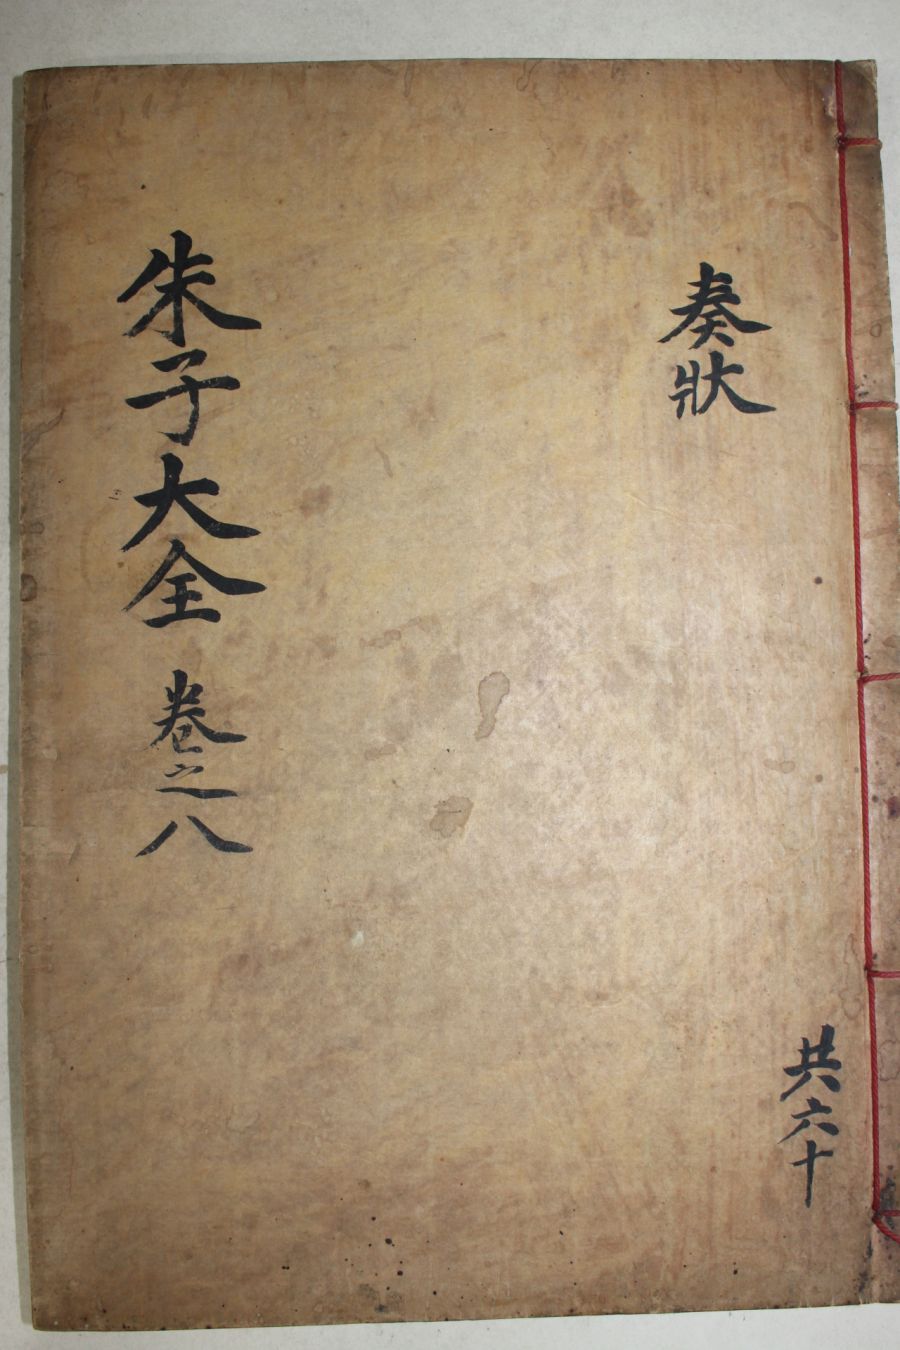 奏狀
共六十
朱子大全 卷之八